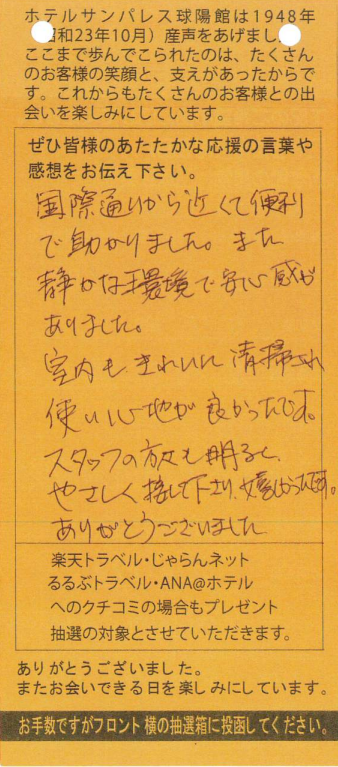 ホテルサンパレス球陽館は1948年
昭和23年10月）産声をあげまし
ここまで歩んでこられたのは、たくさん
のお客様の笑顔と、支えがあったからで
す。これからもたくさんのお客様との出
会いを楽しみにしています。
ぜひ皆様のあたたかな応援の言葉や
感想をお伝え下さい。
国際通りから近くて便利
で助かりました。また
静かな環境で安心感が
ありました。
室内もきれいに清掃され
使い心地が良かったです。
スタッフの方も明るく、
やさしく接して下さり、嬉しかったです。
ありがとうございました
楽天トラベル・じゃらんネット
るるぶトラベル・ANA@ホテル
へのクチコミの場合もプレゼント
抽選の対象とさせていただきます。
ありがとうございました。
またお会いできる日を楽しみにしています。
お手数ですがフロント横の抽選箱に投函してください。